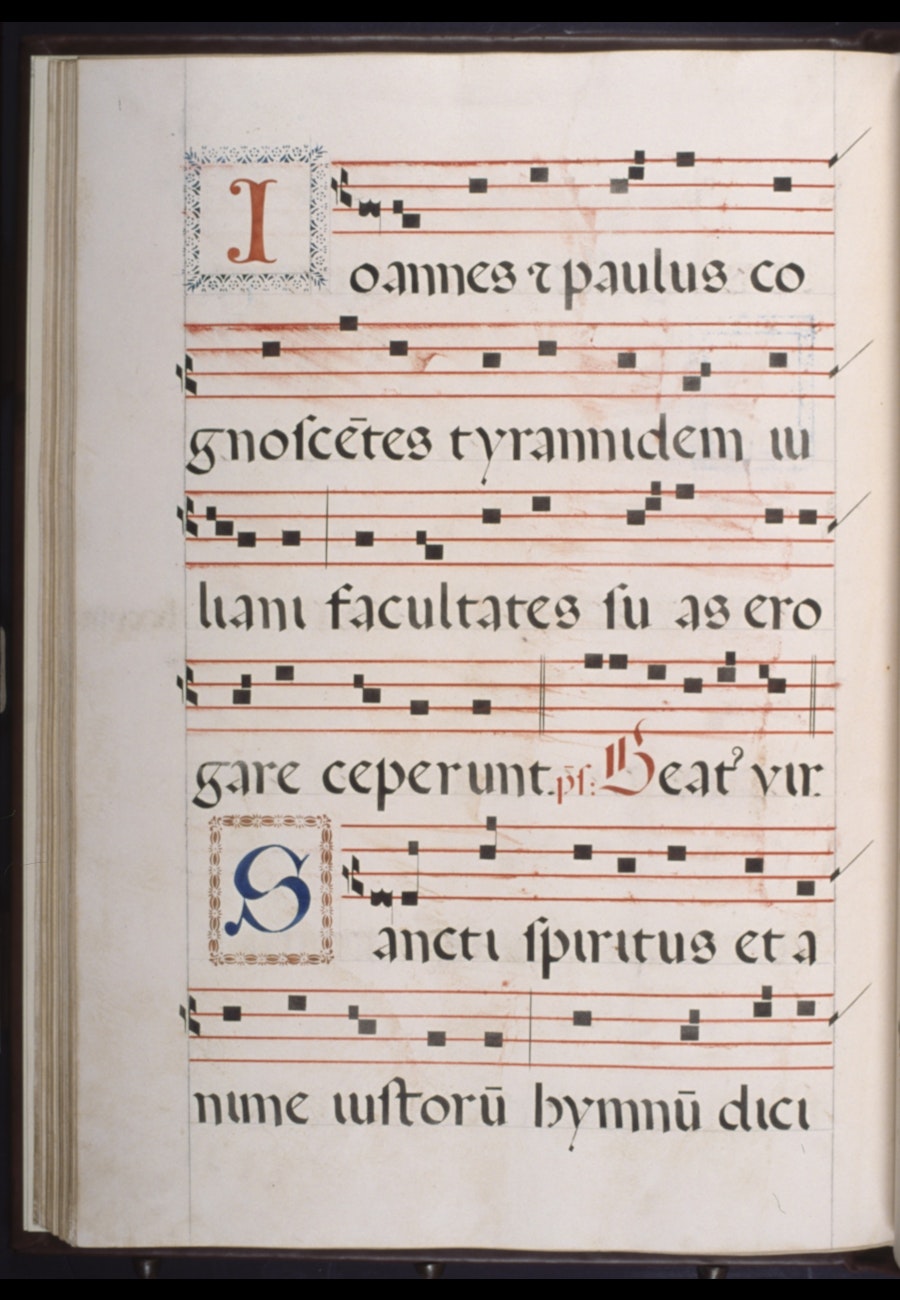 Ioannes ⁊ paulus co
gnoſcētes tyrannidem iu
liani facultates ſu as ero
gare ceperunt. p̄ſ: Beatꝰ vir.
Sancti ſpiritus et a
nime iuſtorū hymnū dici